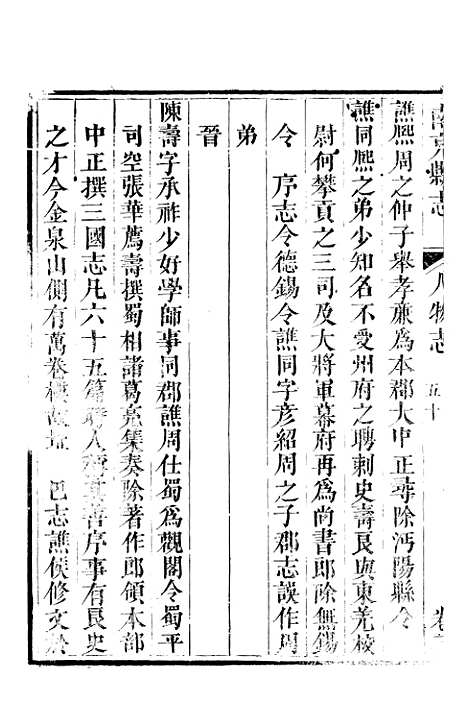 南充縣志 人物志 五十 卷
譙熙周之仲子舉孝廉爲本郡大中正尋除沔陽縣令
譙同熙之弟少知名不受州府之聘刺史壽艮與東羌校
尉何攀貢之三司及大將軍幕府再爲尚書郎除無錫
令 序志令德錫令譙同字彥紹周之子郡志誤作周
弟
晉
陳壽字承祚少好學師事同郡譙周仕蜀爲觀閣令蜀平
司空張華薦壽撰蜀相諸葛亮集奏除著作郎領本郡
中正撰三國志凡六十五篇 人 其善序事有艮史
之才今金泉山側有萬卷樓 巴志譙侯修文於